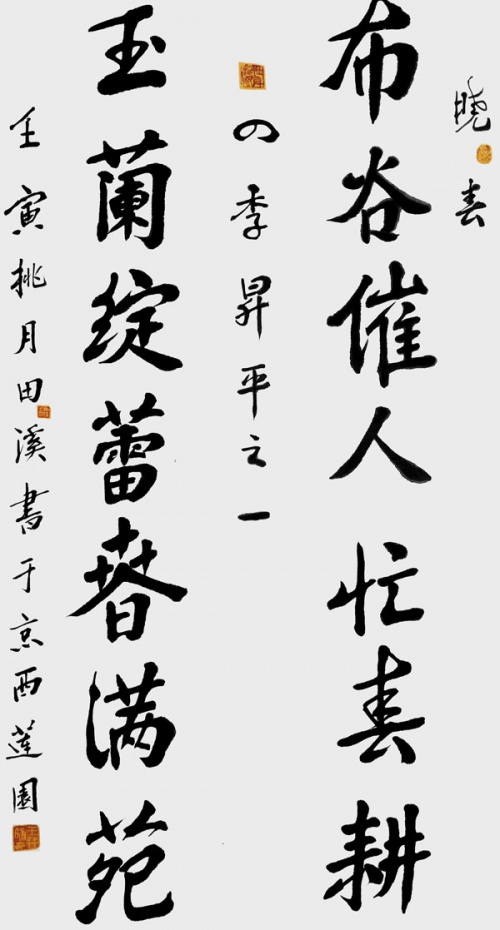 晓春
布谷催人忙春耕
四季昇平之一
玉蘭绽蕾春满苑
壬寅桃月田溪書于京西蓮園